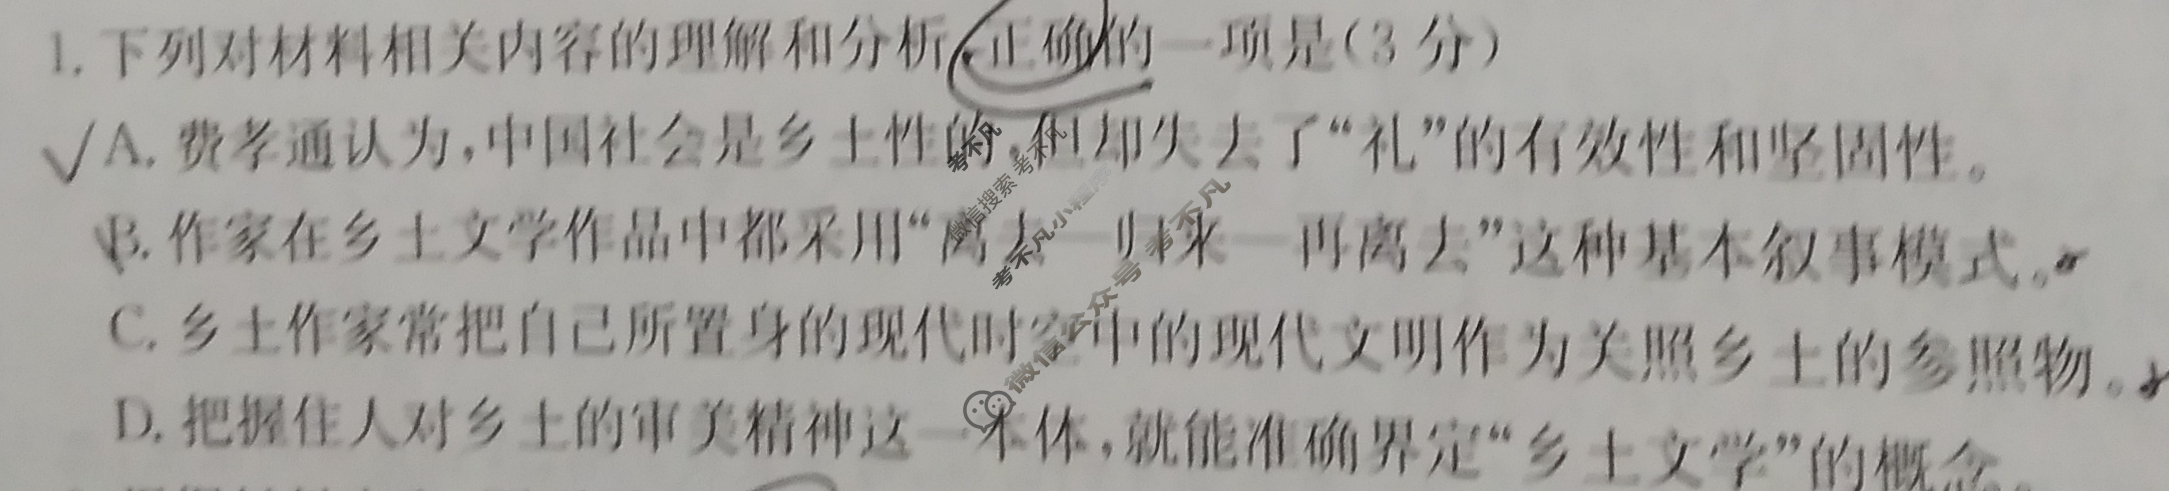 1. 下列对材料相关内容的理解和分析,正确的一项是(3 分)
A. 费孝通认为,中国社会是乡土性的,但却失去了“礼”的有效性和坚固性。
B. 作家在乡土文学作品中都采用“离去—归来—再离去”这种基本叙事模式。
C. 乡土作家常把自己所置身的现代时空中的现代文明作为关照乡土的参照物。
D. 把握住人对乡土的审美精神这一本体,就能准确界定“乡土文学”的概念。
考不凡
微信搜索 考不凡
考不凡小程序
微信公众号 考不凡